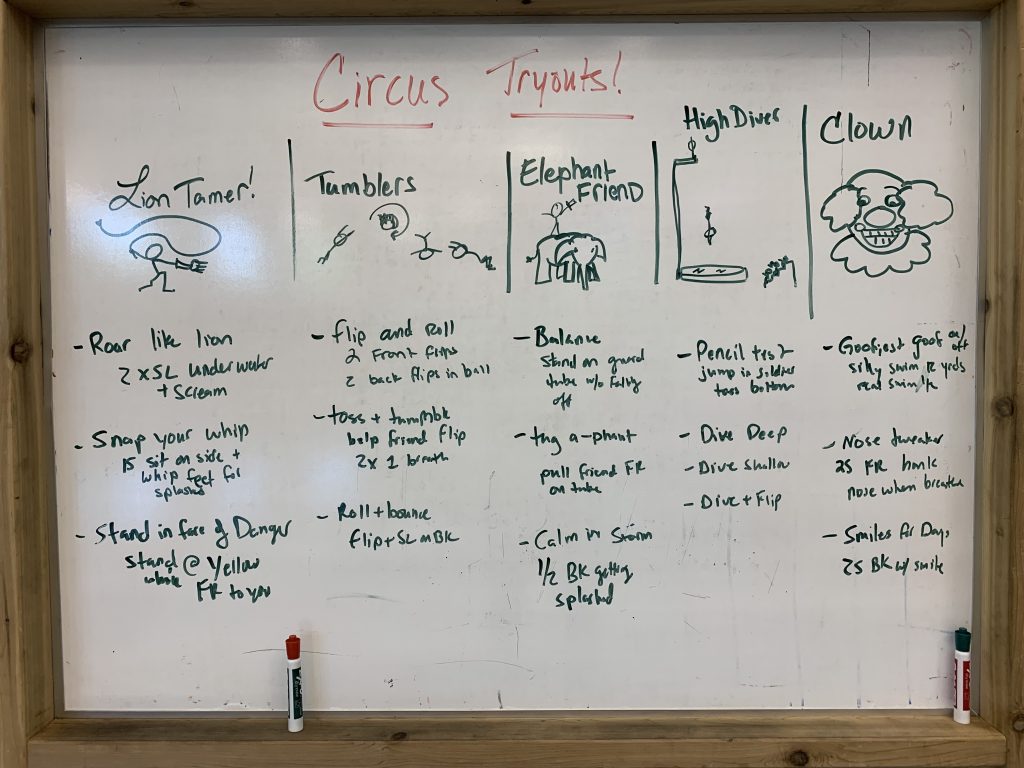 Circus Tryouts!
Lion Tamer!
- Roar like lion
2 x SL underwater
+ scream
- Snap your whip
15 sit on side +
whip feet for
splashes
- Stand in face of Danger
stand @ Yellow
while
FR to you
Tumblers
- flip and Roll
2 Front flips
2 back flips in ball
- toss +
help friend flip
2x 1 breath
- Roll + bounce
flip + SL on BK
Elephant
Friend
- Balance
stand on guard
tube w/o falling
off
- tug a-phant
pull friend FR
on tube
- Calm in Storm
1/2 BK getting
splashed
High Diver
- Pencil test
jump in soldier
toes bottom
- Dive Deep
- Dive Shallow
- Dive + Flip
Clown
- Goofiest goof
silly swim yrds
real swim
- Nose tweaker
25 FR honk
nose when breathe
- Smiles for Days
25 BK w/ smile